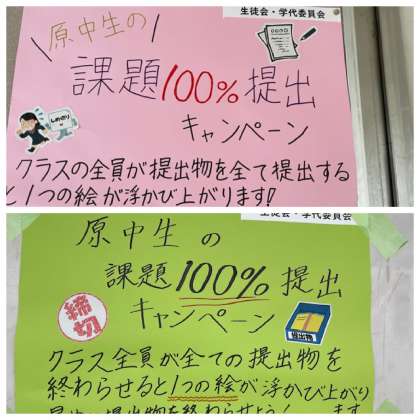 生徒会・学代委員会
原中生の
課題100%提出
キャンペーン
しめきり
クラスの全員が提出物を全て提出する
と1つの絵が浮かび上がります!
生徒会・学代委員会
原中生の
課題100%提出
キャンペーン
締切
提出物
クラス全員が全ての提出物を
終わらせると1つの絵が浮かび上がり